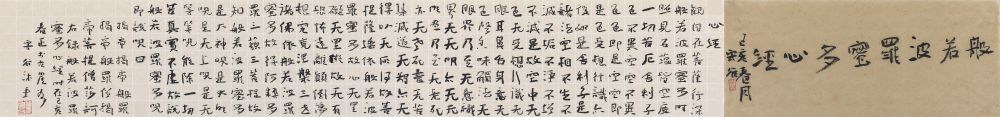 般若波羅蜜多心經
春月
心經
觀自在菩薩行深
般若波羅蜜多時
照見五蘊皆空度
一切苦厄舍利子
色不異空空不異
色色即是空空即
是色受想行識亦
復如是舍利子是
諸法空相不生不
滅不垢不淨不增
不減是故空中无
色无受想行識无
眼耳鼻舌身意无
色聲香味觸法无
眼界乃至无意識
界无无明亦无无
明盡乃至无老死
亦无老死盡无苦
集滅道无智亦无
得以无所得故菩
提薩埵依般若波
羅蜜多故心无罣
礙无罣礙故无有
恐怖遠離顛倒夢
想究竟涅槃三世
諸佛依般若波羅
蜜多故得阿耨多
羅三藐三菩提故
知般若波羅蜜多
是大神呪是大明
呪是无上呪是无
等等呪能除一切
苦真實不虛故說
般若波羅蜜多呪
即說呪曰
揭帝揭帝般羅
揭帝般羅僧揭
帝菩提僧莎訶
右錄般若波羅
蜜多心經時在